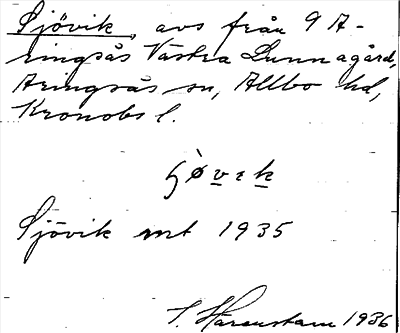 Sjövik, avs från 9 A-
ringsås Västra Lunnagård,
Aringsås sn, Allbo hd,
Kronobs l.
Sjövik mt 1935
1936